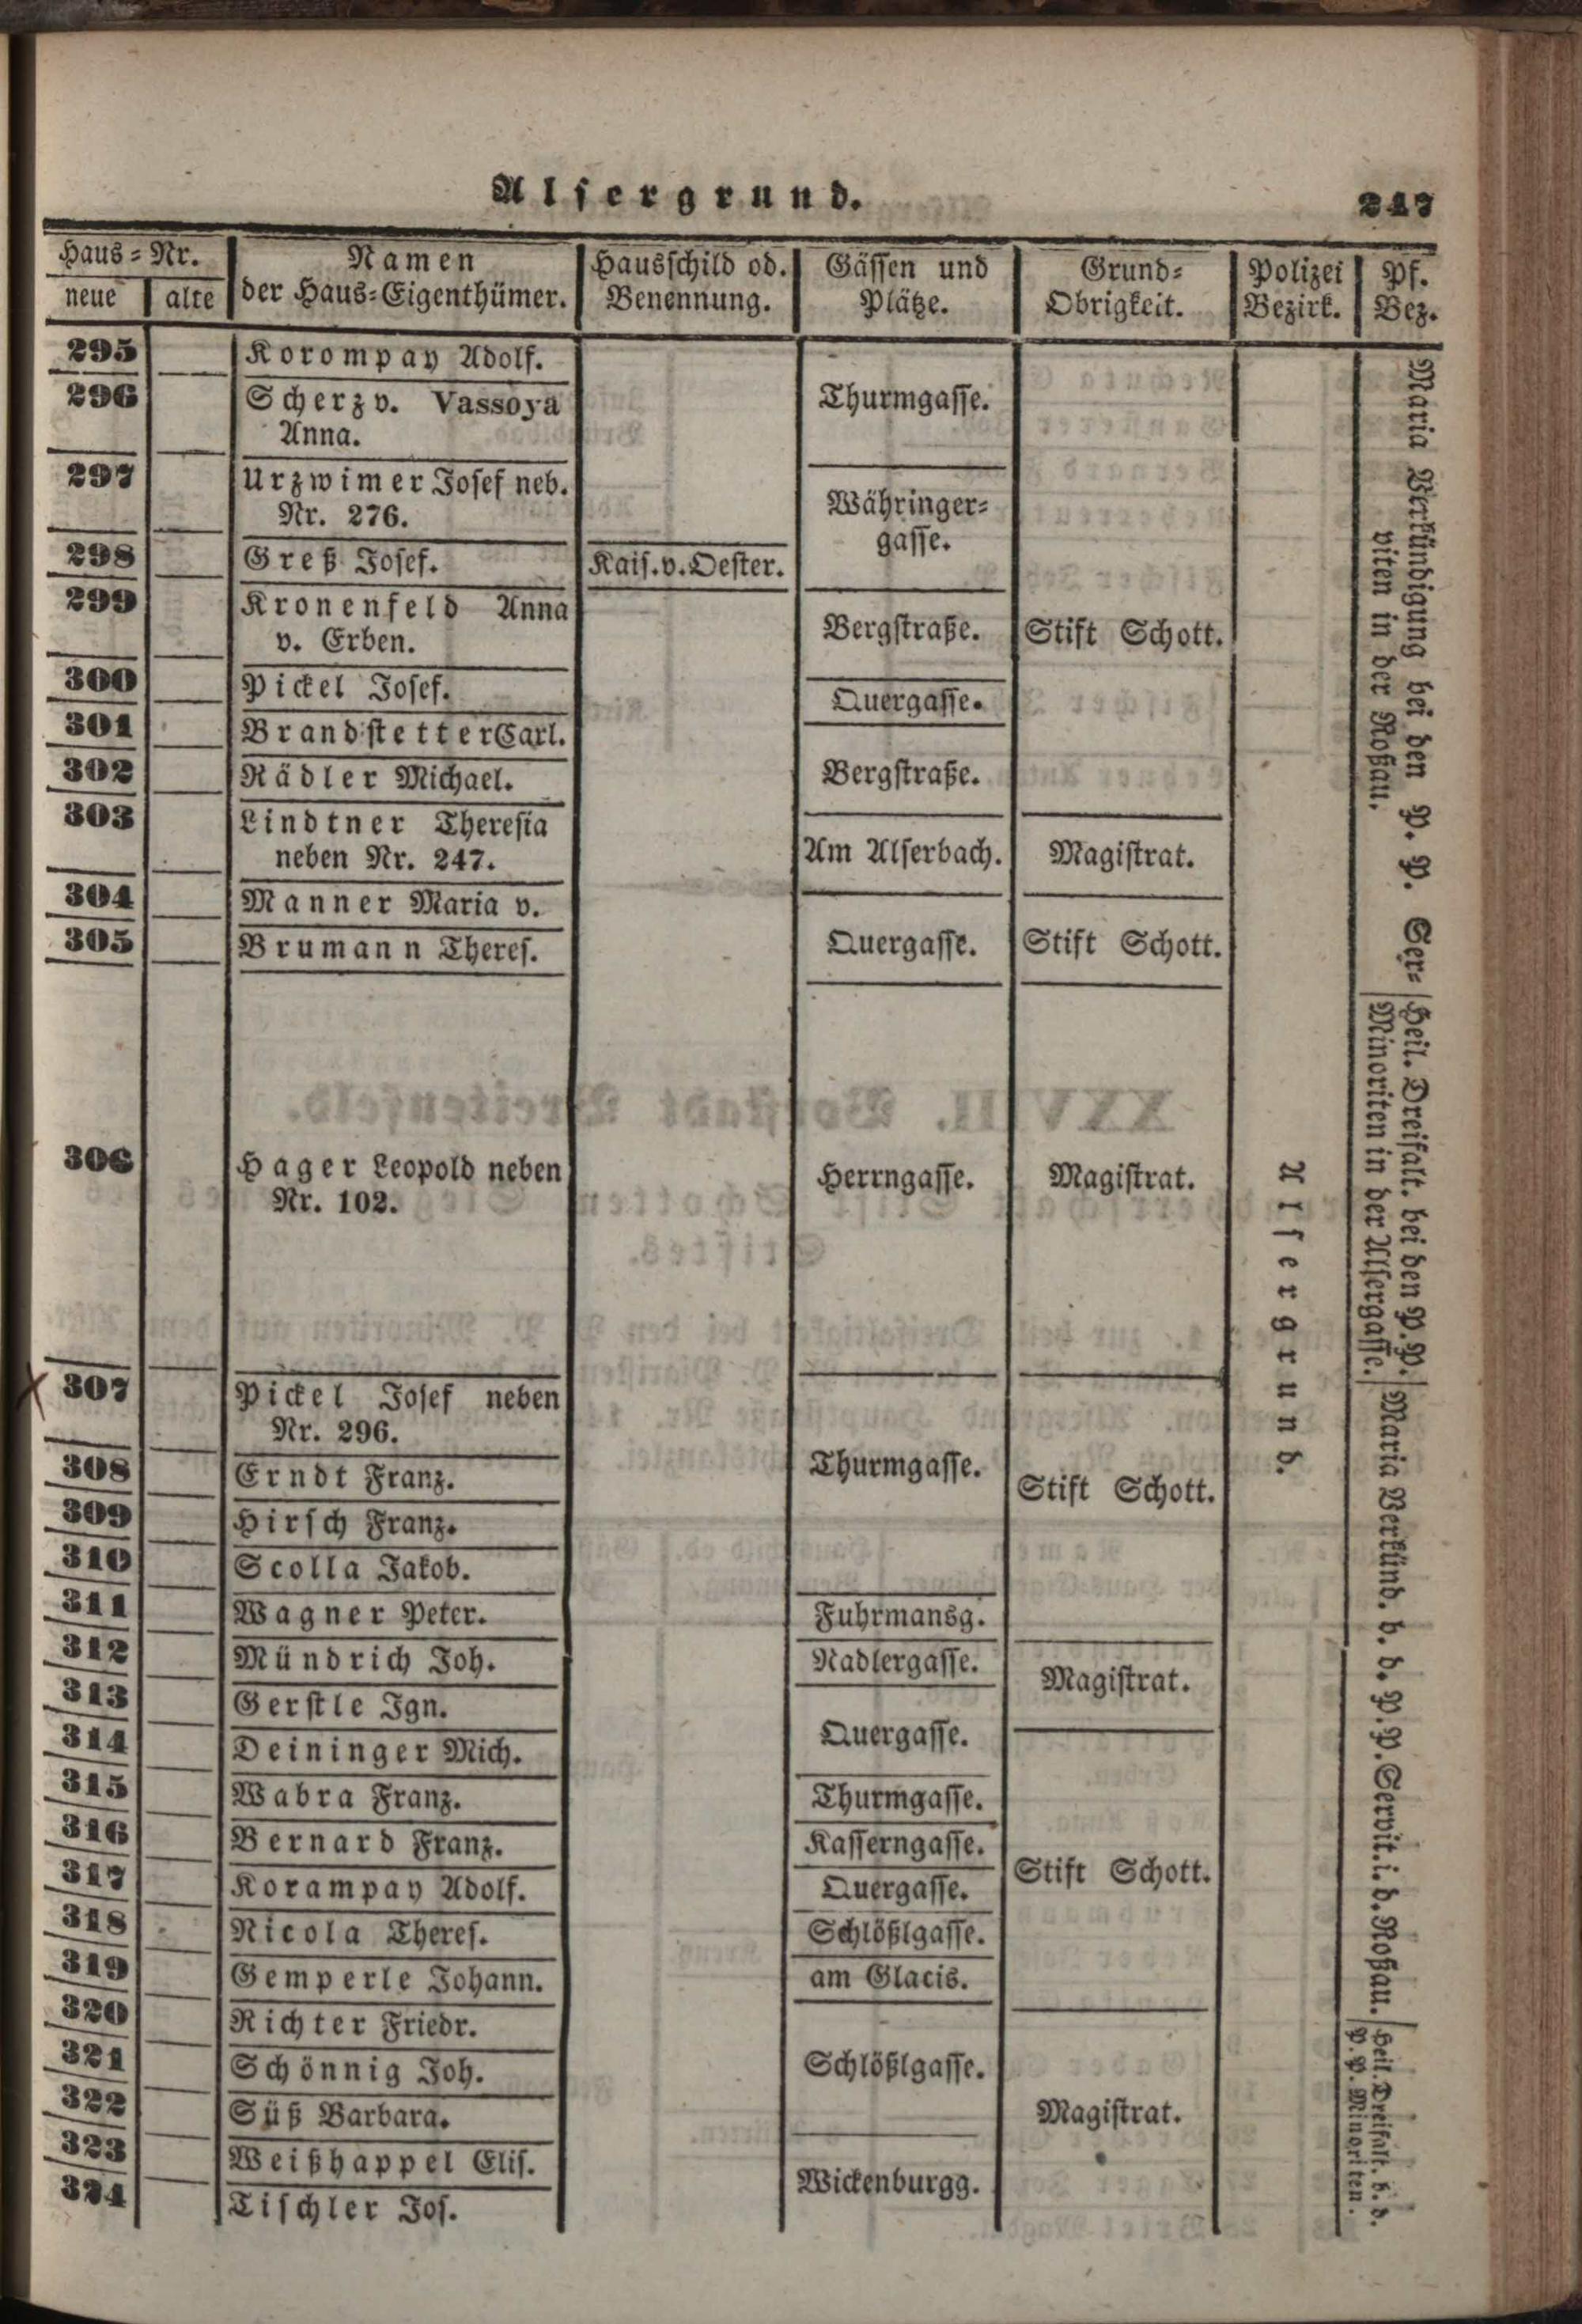 Alsergrund. 247
Haus-Nr. Namen Hausschild od. Gässen und Grund- Polizei Pf.
neue alte der Haus-Eigenthümer. Benennung. Plätze. Obrigkeit. Bezirk. Bez.
295 Korompay Adolf.
296 Scherz v. Vassoya Thurmgasse.
Anna.
297 Urzwimer Josef neb. Währinger-
Nr. 276. gasse.
298 Greß Josef. Kais.v.Oester.
299 Kronenfeld Anna Bergstraße. Stift Schott.
v. Erben.
300 Pickel Josef. Quergasse.
301 Brandstetter Carl.
302 Rädler Michael. Bergstraße.
303 Lindtner Theresia Am Alserbach. Magistrat.
neben Nr. 247.
304 Manner Maria v.
305 Brumann Theres. Quergasse. Stift Schott.
306 Hager Leopold neben Herrngasse. Magistrat.
Nr. 102.
307 Pickel Josef neben
Nr. 296.
308 Erndt Franz. Thurmgasse. Stift Schott.
309 Hirsch Franz.
310 Scolla Jakob.
311 Wagner Peter. Fuhrmansg.
312 Mündrich Joh. Nadlergasse. Magistrat.
313 Gerstle Ign.
314 Deininger Mich. Quergasse.
315 Wabra Franz. Thurmgasse.
316 Bernard Franz. Kasserngasse. Stift Schott.
317 Korampay Adolf. Quergasse.
318 Nicola Theres. Schlößlgasse.
319 Gemperle Johann. am Glacis.
320 Richter Friedr.
321 Schönnig Joh. Schlößlgasse.
322 Süß Barbara. Magistrat.
323 Weißhappel Elis.
324 Tischler Jos. Wickenburgg.
Alsergrund.
Maria Verkündigung bei den P. P. Ser-
viten in der Roßau.
Heil. Dreifalt. bei den P. P.
Minoriten in der Alsergasse.
Maria Verkünd. b. d. P. P. Servit. i. d. Roßau.
Heil. Dreifalt. b. d.
P. P. Minoriten.